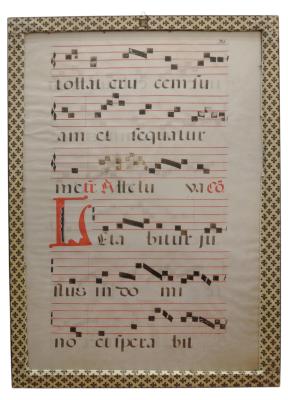 tollat cru cem su
am et sequatur
me tr̃ Allelu ya cõ
Leta bitur ju
stus in do mi
no et spera bit